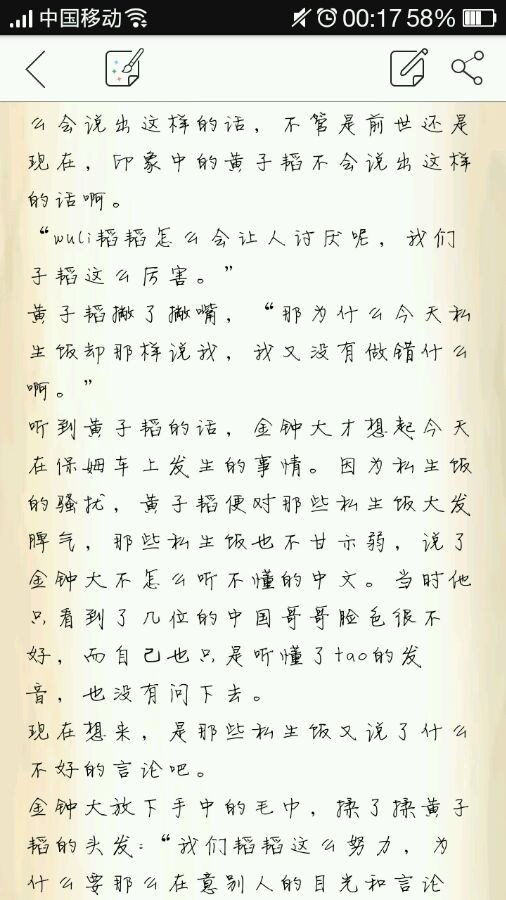 中国移动 00:17 58%
么会说出这样的话，不管是前世还是
现在，印象中的黄子韬不会说出这样
的话啊。
“wuli韬韬怎么会让人讨厌呢，我们
子韬这么厉害。”
黄子韬撇了撇嘴，“那为什么今天私
生饭却那样说我，我又没有做错什么
啊。”
听到黄子韬的话，金钟大才想起今天
在保姆车上发生的事情。因为私生饭
的骚扰，黄子韬便对那些私生饭大发
脾气，那些私生饭也不甘示弱，说了
金钟大不怎么听不懂的中文。当时他
只看到了几位的中国哥哥脸色很不
好，而自己也只是听懂了tao的发
音，也没有问下去。
现在想来，是那些私生饭又说了什么
不好的言论吧。
金钟大放下手中的毛巾，揉了揉黄子
韬的头发：“我们韬韬这么努力，为
什么要那么在意别人的目光和言论